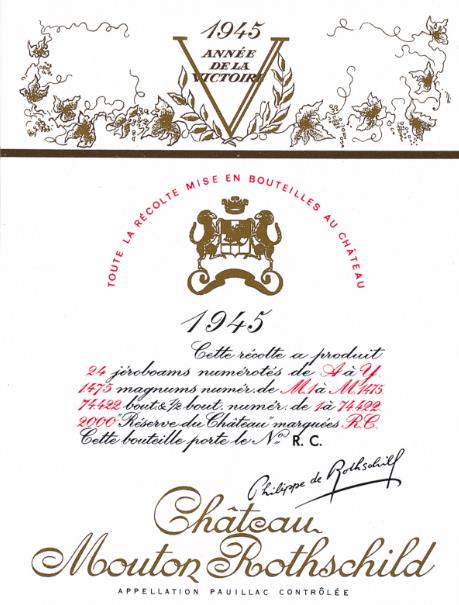 1945
ANNÉE
DE LA
VICTOIRE
TOUTE LA RÉCOLTE MISE EN BOUTEILLES AU CHÂTEAU
1945
Cette récolte a produit
24 jéroboams numérotés de A à Y.
1475 magnums numér. de M.1 à M.1475
74422 bout. & ½ bout. numér. de 1 à 74422
2000 "Réserve du Château" marquées R.C.
Cette bouteille porte le No R.C.
Philippe de Rothschild
Château
Mouton Rothschild
APPELLATION PAUILLAC CONTRÔLÉE